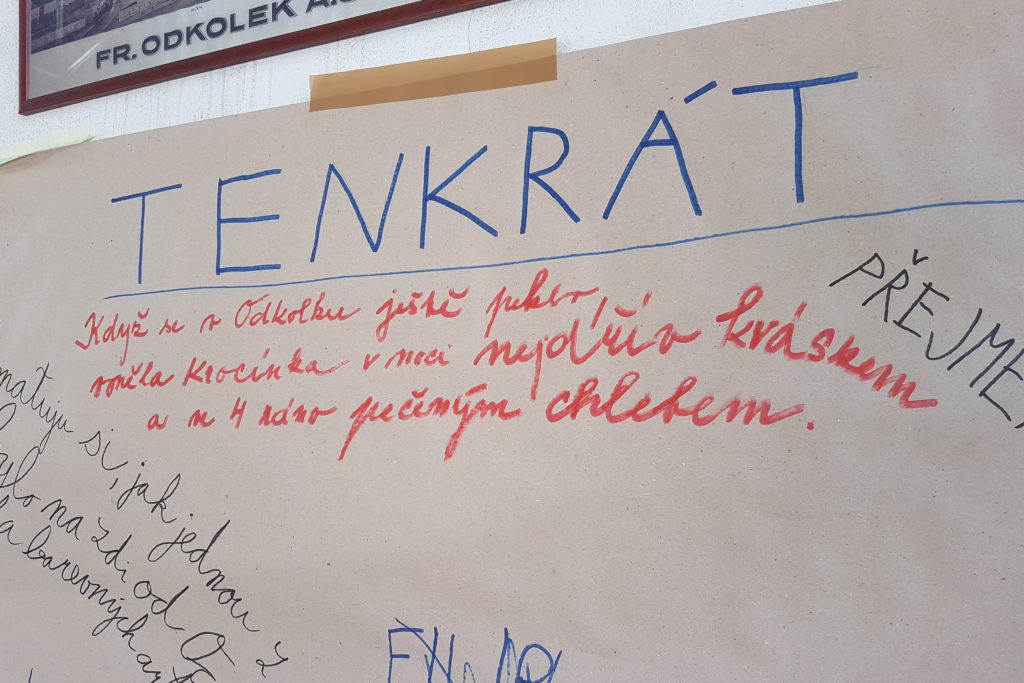 FR. ODKOLEK A.
TENKRÁT
Když se v Odkolku ještě peklo
voněla Krocínka v noci nejdřív kváskem
a ve 4 ráno pečeným chlebem.
PŘEJME
matuju si, jak jednou z
na zdi od O
barevných